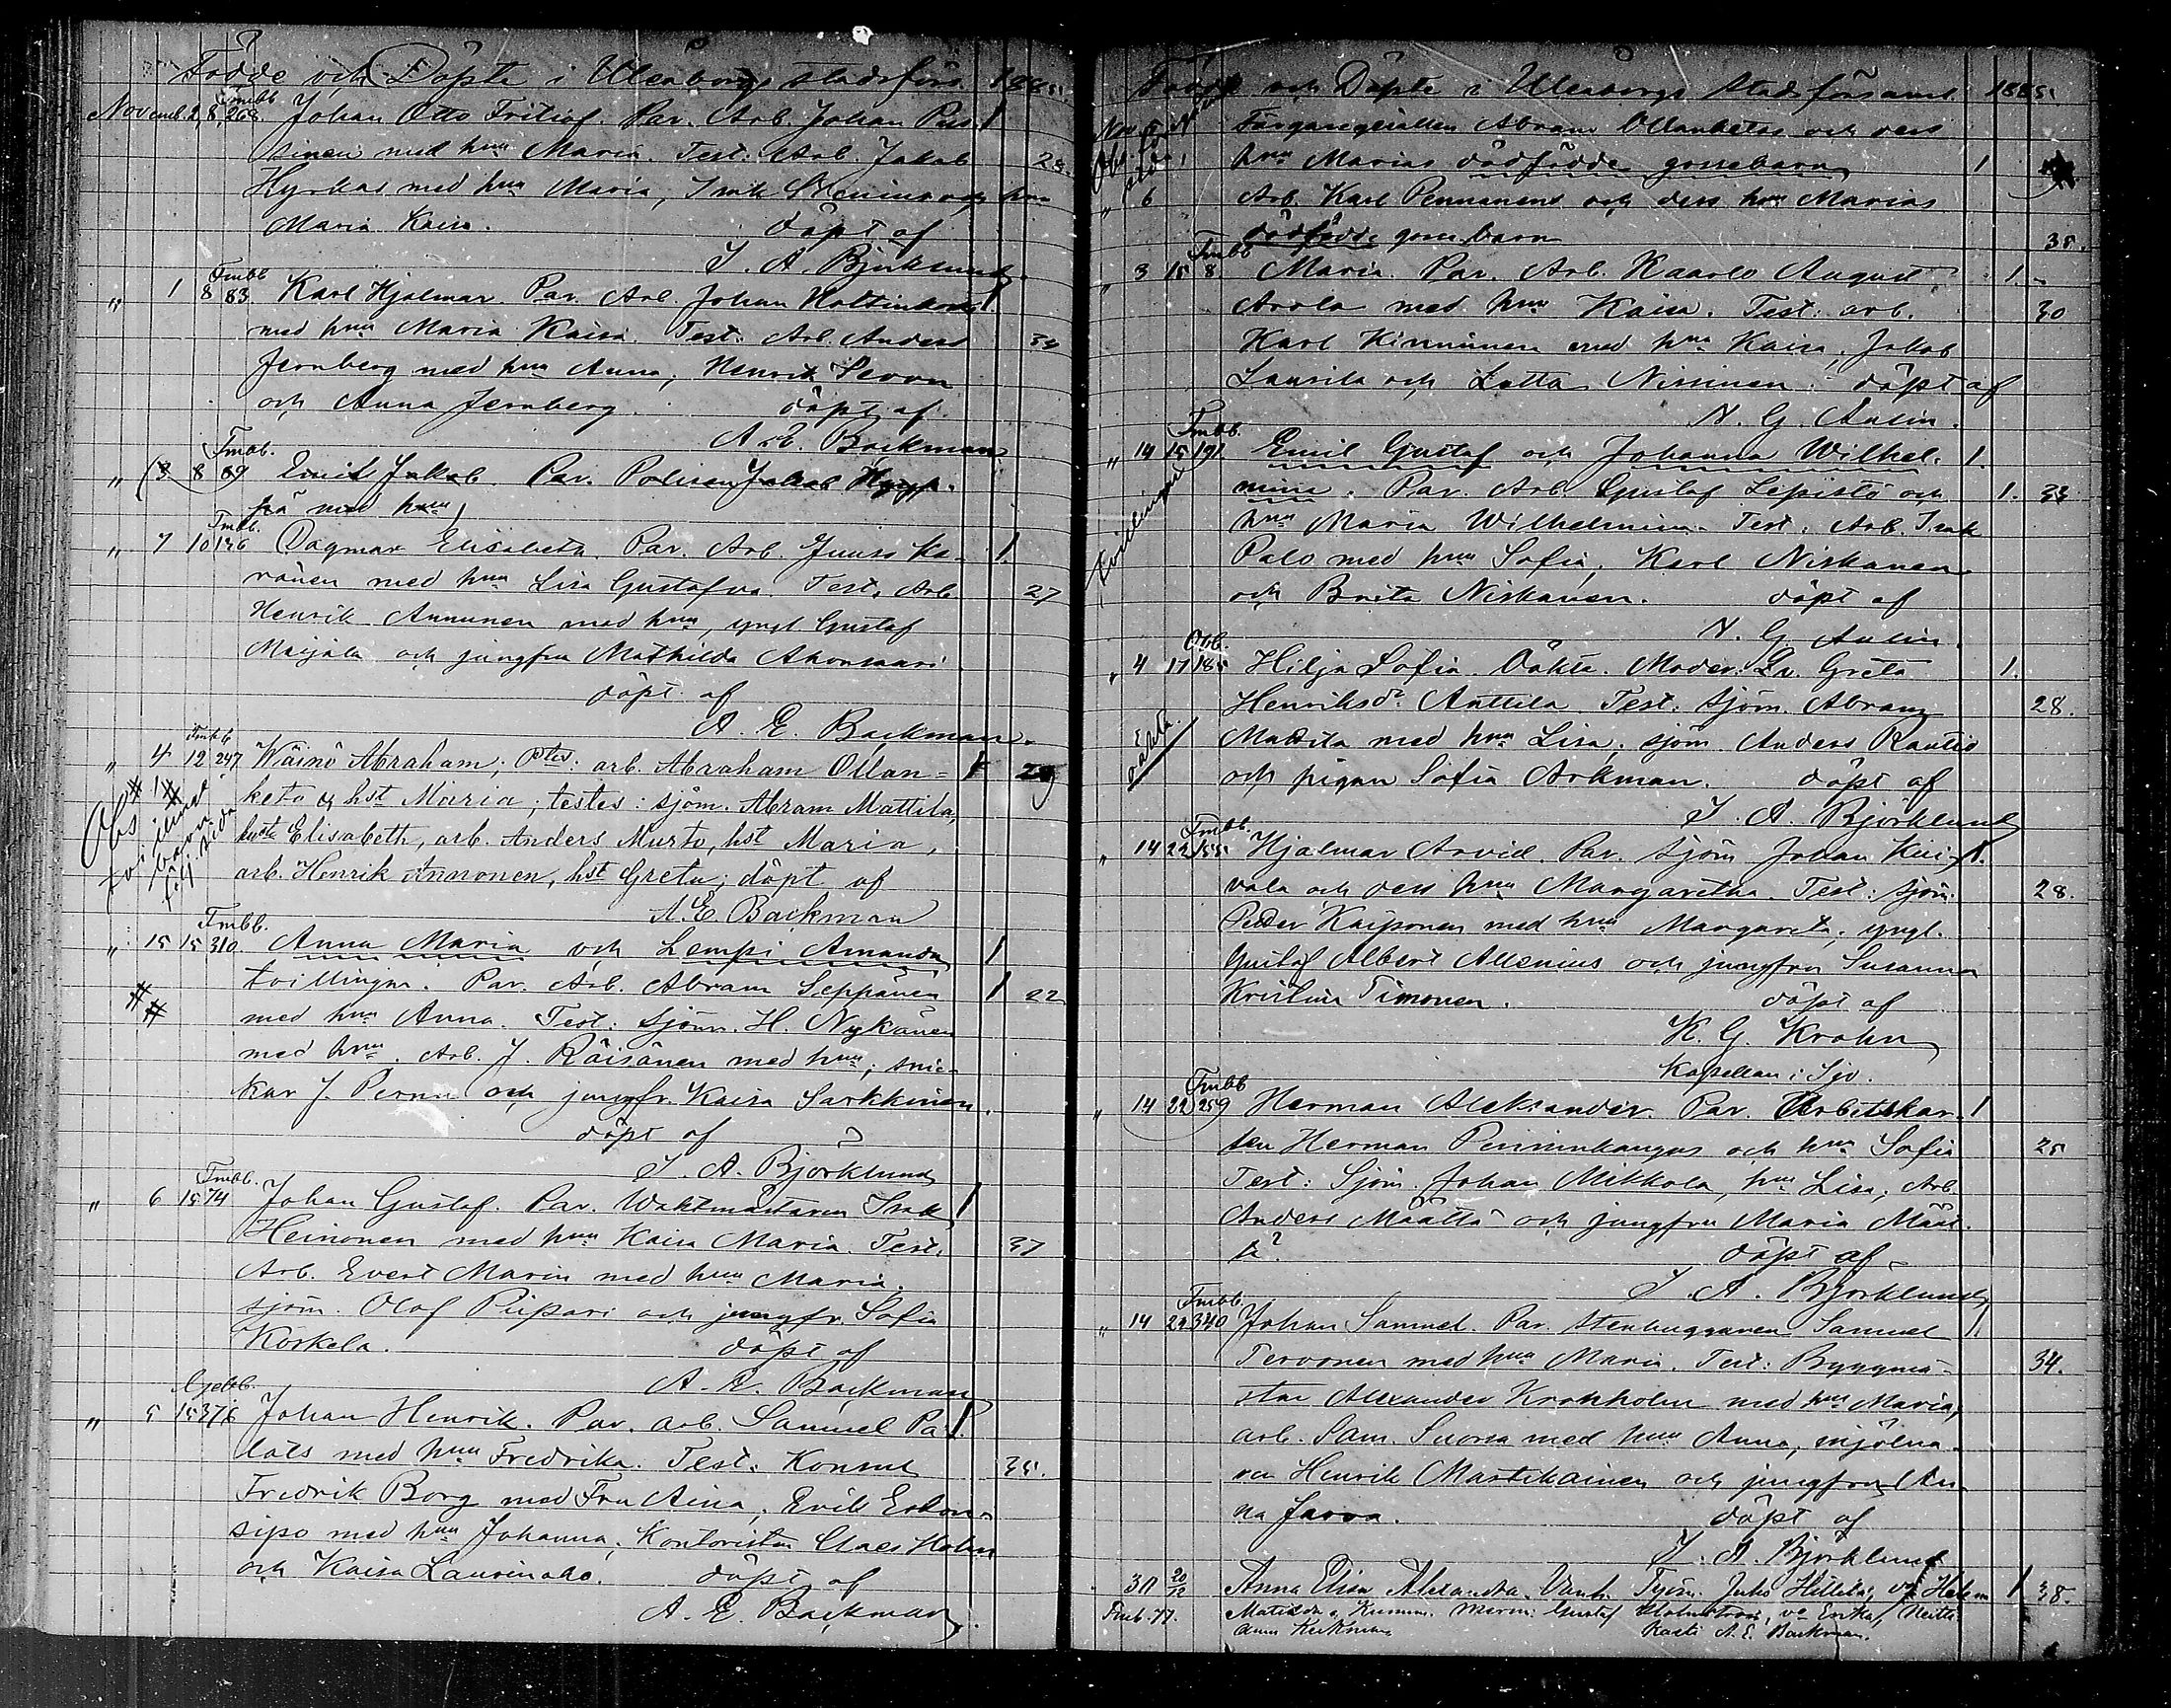 Födde och Döpte i Uleåborgs stadsförs. 1885.
Novemb. 2, 8, Fmbb 268 Johan Otto Fritiof. Par. Arb. Johan Pus- 1
sinen med hru Maria. Test: Arb. Jakob 28.
Hyrkäs med hru Maria, Isak
Maria Kaisa. döpt af
J. A. Björklund.
„ 1 8 Fmbb 83 Karl Hjalmar. Par. Arb. Johan 1
med hru Maria Kaisa. Test. Arb. Anders 32
Jernberg med hru Anna, Henrik
och Anna Jernberg. döpt af
A. E. Backman
„ (3 8 Fmbb. 69 Emil Jakob. Par. Polisen Jakob
pä med hru)
„ 7 10 Fmbb. 136 Dagmar Elisabeth. Par. Arb. Juuso Ka- 1.
ränen med hru Lisa Gustafva. Test. Arb 27
Henrik Annunen med hru, yngl Gustaf
Maijala och jungfru Mathilda Ahonsaari
döpt af
A. E. Backman.
„ 4 12 Fmbb 247 Wäinö Abraham; Ptes: arb. Abraham Ollan= 1 29
Obs # 1 #
keto & hst Maria; testes: sjöm. Abram Mattila,
hustr Elisabeth, arb. Anders Murto, hst Maria,
arb. Henrik Annonen, hst Greta; döpt af
A. E. Backman
tvillingebarn
följ. sida
„ 15 15 Fmbb. 310. Anna Maria och Lempi Amanda 1
tvillingar. Par. Arb. Abram Seppänen 1 22
# #
med hru Anna. Test: sjöm. H. Nykänen
med hru. Arb. J. Räisänen med hru; snic-
kar J. Pernu och jungfr. Kaisa Sarkkinen.
döpt af
J. A. Björklund
„ 6 15 Fmbb. 74 Johan Gustaf. Par. Waktmästaren Isak 1
Heinonen med hru Kaisa Maria. Test. 37
Arb. Evert Marin med hru Maria.
sjöm. Olof Piipari och jungfr. Sofia
Korkela. döpt af
A. E. Backman
„ 5 15 376 Johan Henrik. Par. arb. Samuel Pa- 1
lots med hru Fredrika. Test. Konsul 35.
Fredrik Borg med Fru Aina, Erik
sipo med hru Johanna, Kontoristen Claes Holm
och Kaisa Laurinaho. döpt af
A. E. Backman.
Födde och Döpte i Uleåborgs Stadsförsaml. 1885.
Nov.
Obs.
Färgaregesällen Abram Ollanketos och dess
hru Marias dödfödde gossebarn 1
„ 6 Arb. Karl Pennanens och dess hru Marias
dödfödde gossebarn 35.
„ 3 15 Fmbb 8. Maria. Par. Arb. Kaarlo August 1.
Arola med hru Kaisa. Test: arb. 30
Karl Kinnunen med hru Kaisa, Jakob
Laurila och Lotta Nissinen. döpt af
N. G. Aulin.
„ 14 15 Fmbb. 191. Emil Gustaf och Johanna Wilhel- 1.
mina. Par. Arb. Gustaf Lepistö och 1. 33
hru Maria Wilhelmina. Test: Arb. Isak
Palo med hru Sofia, Karl Niskanen
och Brita Niskanen. döpt af
N. G. Aulin.
„ 4 17 185 Hilja Sofia. Oäkta. Moder: Greta 1.
Henriksdr Anttila Test: sjöm. Abram 28.
oäkta.
Mattila med hru Lisa, sjöm. Anders Rautio
och pigan Sofia Arkman. döpt af
J. A. Björklund
„ 14 22 Fmbb. 155 Hjalmar Arvid. Par. sjöm Johan Kui- 1.
vala och dess hru Margaretha. Test: sjöm. 28.
Petter Kaiponen med hru Margareta, yngl.
Gustaf Albert Allenius och jungfru Susanna
Kristina Timonen. döpt af
K. G. Krohn
Kapellan i Sjo.
„ 14 22 Fmbb 259 Herman Aleksander. Par. Arbetskar- 1
len Herman Penninkangas och hru Sofia 25
Test: Sjöm. Johan Mikkola, hru Lisa, Arb.
Anders Määttä och jungfru Maria Määt-
tä? döpt af
J. A. Björklund
„ 14 22 Fmbb. 340 Johan Samuel. Par. stenhuggaren Samuel 1.
Tervonen med hru Maria. Test: Byggmä- 34.
star Alexander Krokholm med hru Maria,
arb. Sam. Suorsa med hru Anna, mjölna-
ren Henrik Martikainen och jungfru An-
na Jarva. döpt af
J. A. Björklund
30 20/12 Anna Elisa Alexandra. Vanh. Juho va Helena 1 38.
Fmb. 77. Matilda Gustaf va Erika, Neiti
Kasti A. E. Backman.